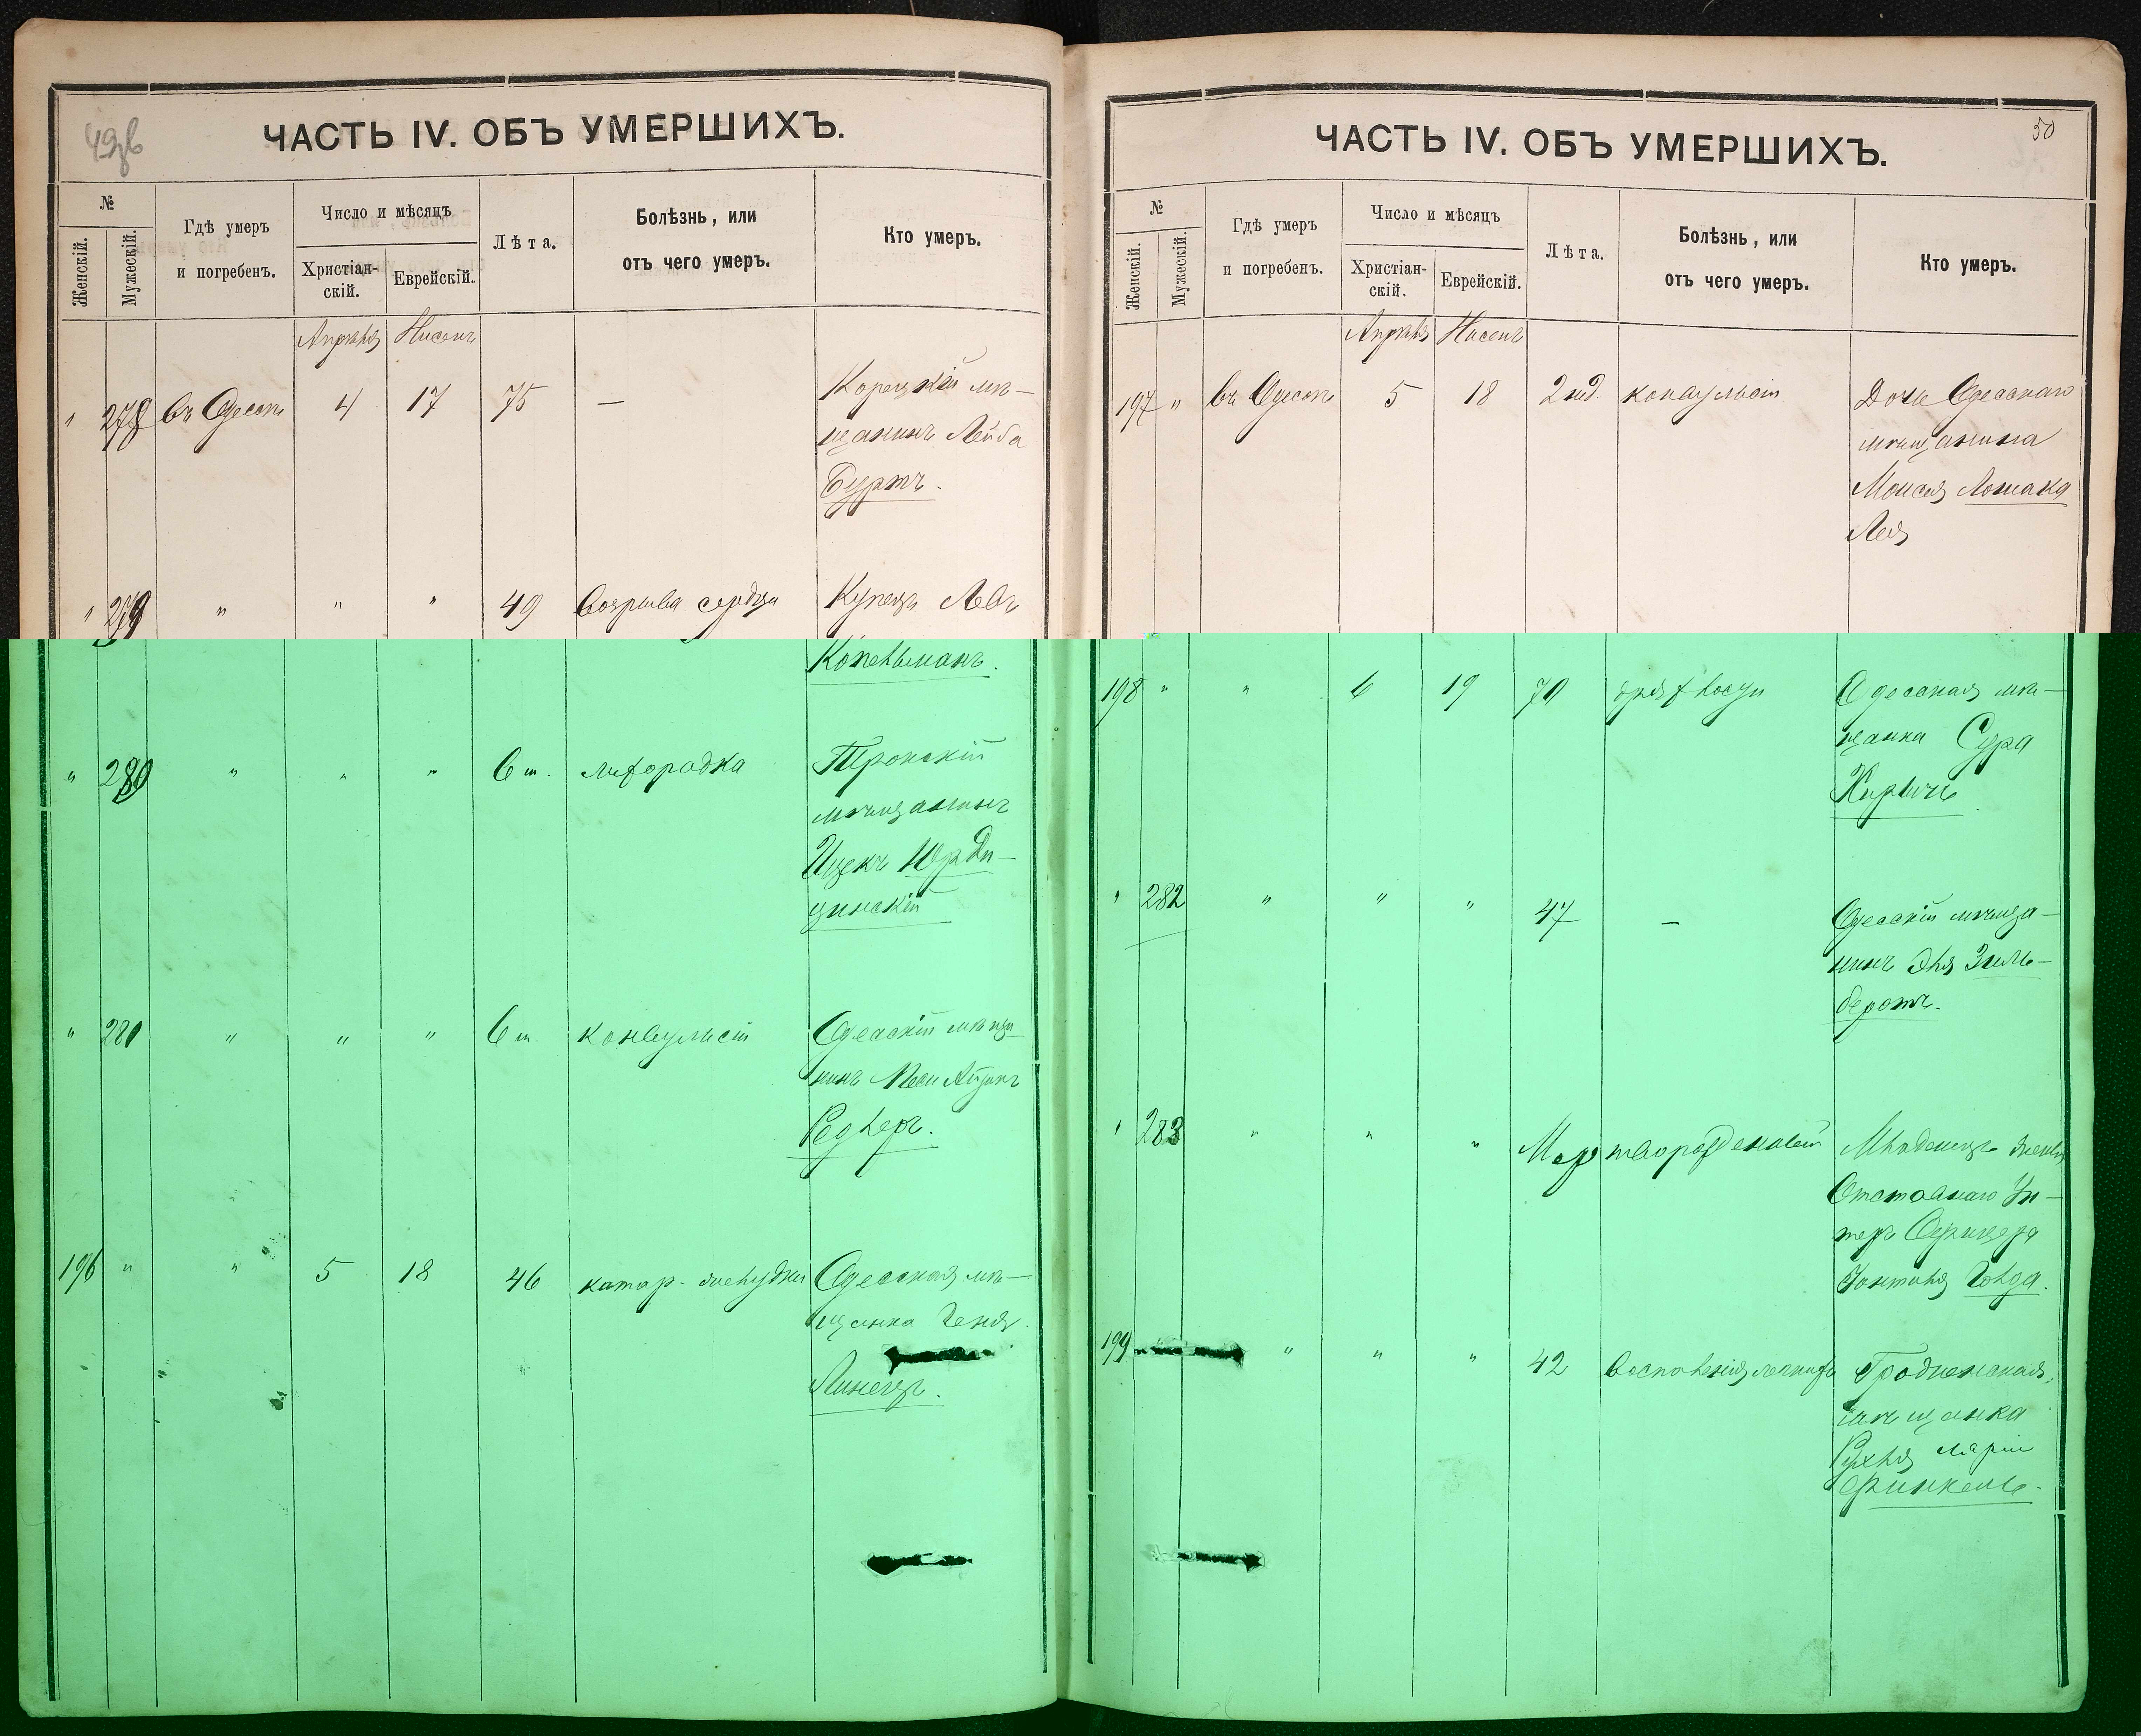 49об
ЧАСТЬ IV. ОБЪ УМЕРШИХЪ.
№
Женскій.
Мужескій.
Гдѣ умеръ
и погребенъ.
Число и мѣсяцъ
Христіан-
скій.
Еврейскій.
Лѣта.
Болѣзнь, или
отъ чего умеръ.
Кто умеръ.
Апрѣля Нисенъ
" 278 въ Одессѣ 4 17 75 — Корецкій мѣ-
щанинъ Лейба
Буртъ.
" 279 " " " 49 сердца Купецъ Левъ
Копельманъ.
" 280 " " " 6 м. лихорадка Трокскій
мѣщанинъ
Ицекъ Юрди-
цинскій
" 281 " " " 6 м. конвульсіи Одесскій мѣща-
нинъ
Редлеръ.
196 " " 5 18 46 катар. желудка Одесская мѣ-
щанка Геня
Линецъ.
50
ЧАСТЬ IV. ОБЪ УМЕРШИХЪ.
№
Женскій.
Мужескій.
Гдѣ умеръ
и погребенъ.
Число и мѣсяцъ
Христіан-
скій.
Еврейскій.
Лѣта.
Болѣзнь, или
отъ чего умеръ.
Кто умеръ.
Апрѣля Нисенъ
197 " въ Одессѣ 5 18 2 нед. конвульсіи Дочь Одесскаго
мѣщанина
Моисея Лошака
Лея
198 " " 6 19 70 Одесская мѣ-
щанка Сура
Кирличъ
" 282 " " " 47 — Одесскій мѣща-
нинъ Эля Зиль-
беротъ.
" 283 " " " Мертворожденный Младенецъ
Отставнаго Ун-
теръ Офицера
Голда.
199 " " " " 42 воспаленія легкихъ Гродненская
мѣщанка
Рухля Марія
Финкель.